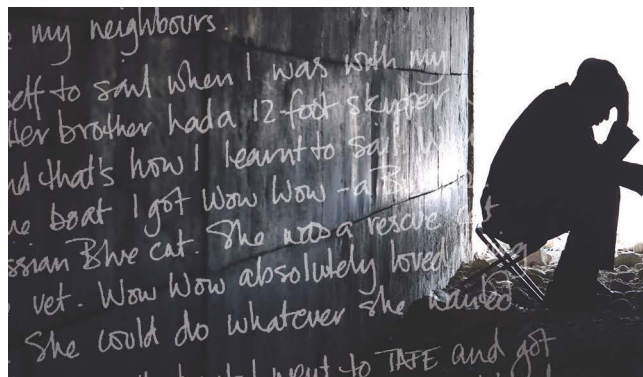 my neighbours.
self to sail when I was with my
her brother had a 12 foot skipper
nd that's how I learnt to sail
boat I got Wow Wow - a
ssian Blue cat. She was a rescue
vet. Wow Wow absolutely loved
She could do whatever she wanted
went to TAFE and got